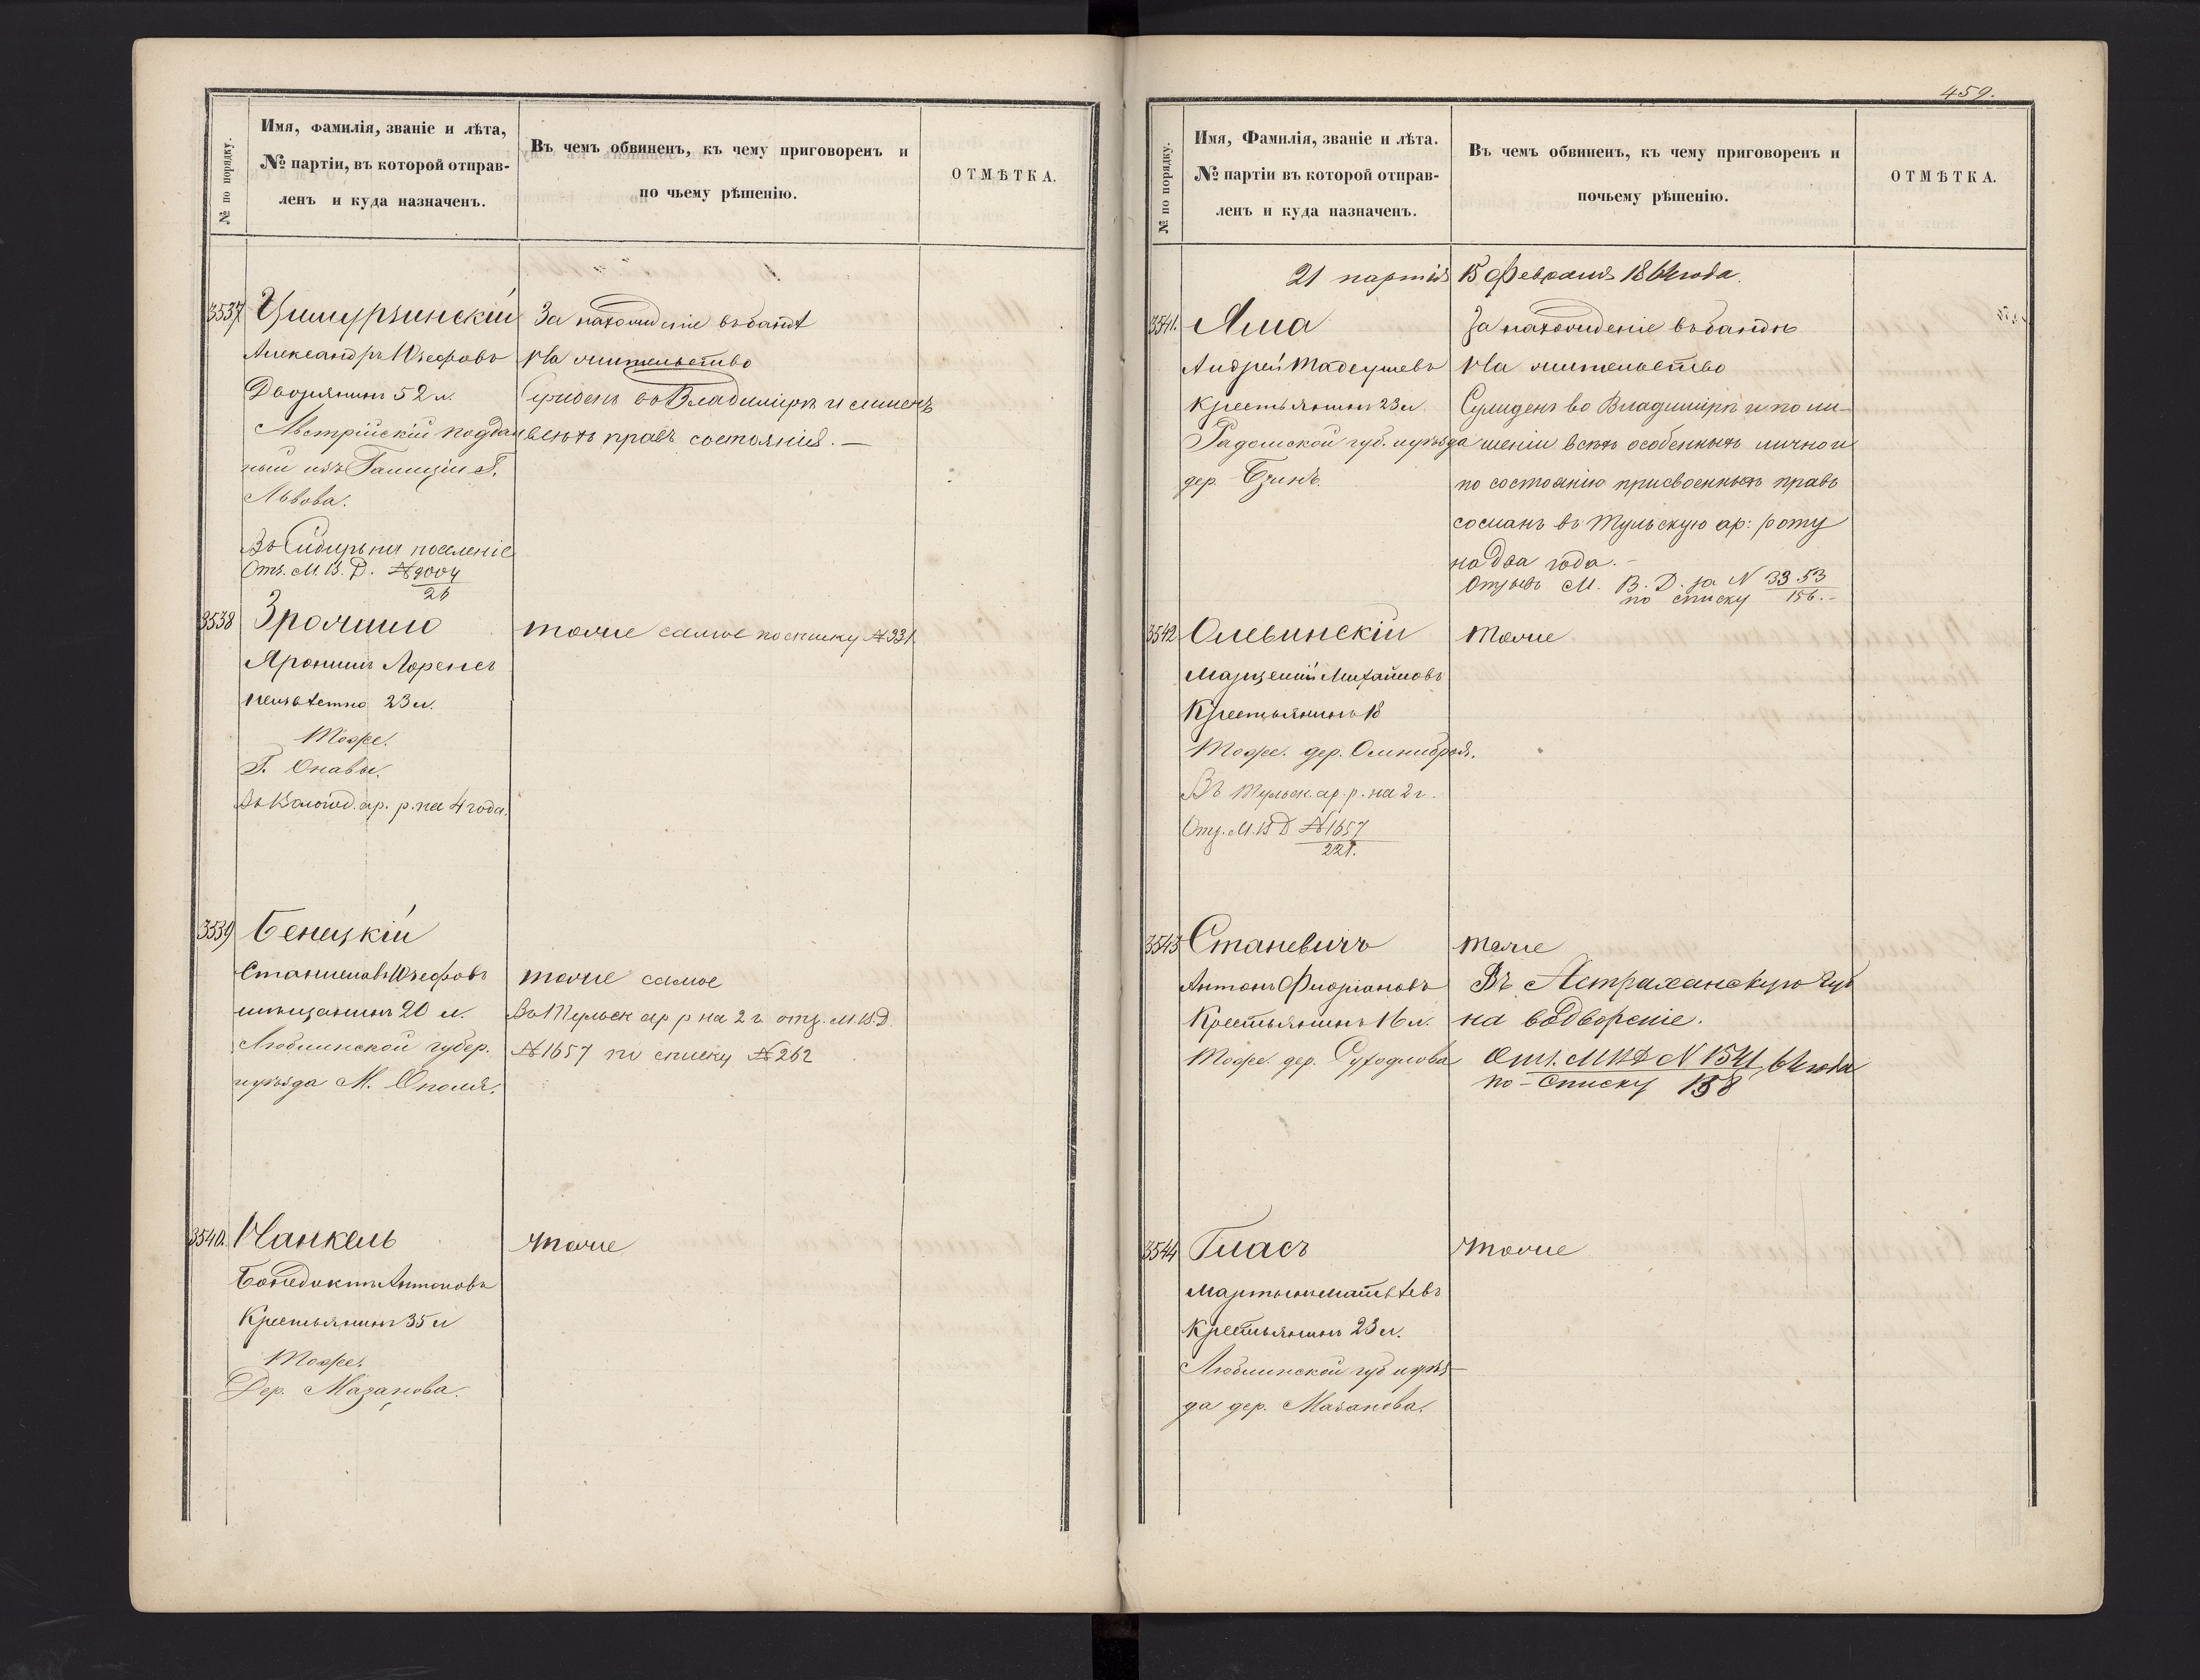 № по порядку.
Имя, Фамилія, званіе и лѣта,
№ партіи, въ которой отправ-
ленъ и куда назначенъ.
Въ чемъ обвиненъ, къ чему приговоренъ и
по чьему рѣшенію.
ОТМѢТКА.
3537
За нахожденіе въ бандѣ
Александръ Юзефовъ
На жительство
Дворянинъ 52 л.
Сужденъ во Владимірѣ и лишенъ
Австрійскій поддан
всѣхъ правъ состоянія. —
ный изъ Галиціи Г.
Львова.
Въ Сибирь на поселеніе
Отз. М. В. Д. № 9004
26
3538
тоже самое по списку № 331.
Лоренсъ
неизвѣстно 23 л.
Тоже.
Г.
ар. р. на 4 года.
3539
Бенецкій
Станиславъ Юзефовъ
тоже самое
мѣщанинъ 20 л.
Въ Тульск ар р на 2 г. отз. М. В. Д
Люблинской губер.
№ 1657 по списку № 262
и уѣзда М. Ополя.
3540.
Чанкель
тоже
Бенедиктъ Антоновъ
Крестьянинъ 35 л
Тоже.
Дер. Мазанова.
459.
№ по порядку.
Имя, Фамилія, званіе и лѣта.
№ партіи въ которой отправ-
ленъ и куда назначенъ.
Въ чемъ обвиненъ, къ чему приговоренъ и
почьему рѣшенію.
ОТМѢТКА.
21 партія 15 Февраля 1864 года.
3541.
За нахожденіе въ бандѣ
Андрей Тадеушевъ
На жительство
Крестьянинъ 23 л.
Сужденъ во Владимірѣ и по ли-
Радомской губ. и уѣзда
шеніи всѣхъ особенныхъ лично и
дер. Бзинъ.
по состоянію присвоенныхъ правъ
сосланъ въ Тульскую ар: роту
на два года. -
Отзывъ М. В. Д. за N 3353
по списку 156. -
3542
Олевинскій
тоже
Марцелій Михайловъ
Крестьянинъ 18
Тоже. дер.
Въ Тульск. ар. р. на 2 г.
Отз. М. В Д № 1657
221.
3543
Станевичъ
тоже
Антонъ Флоріановъ
Въ Астраханскую Губ
Крестьянинъ 16 л.
на водвореніе.
Тоже. дер. Суходлова
Отз. МВД N 1541 64 года
по - списку 158
3544
Гласъ
тоже
Мартынъ Матвѣевъ
Крестьянинъ 23 л.
Люблинской губ и уѣз-
да дер. Мазанова.